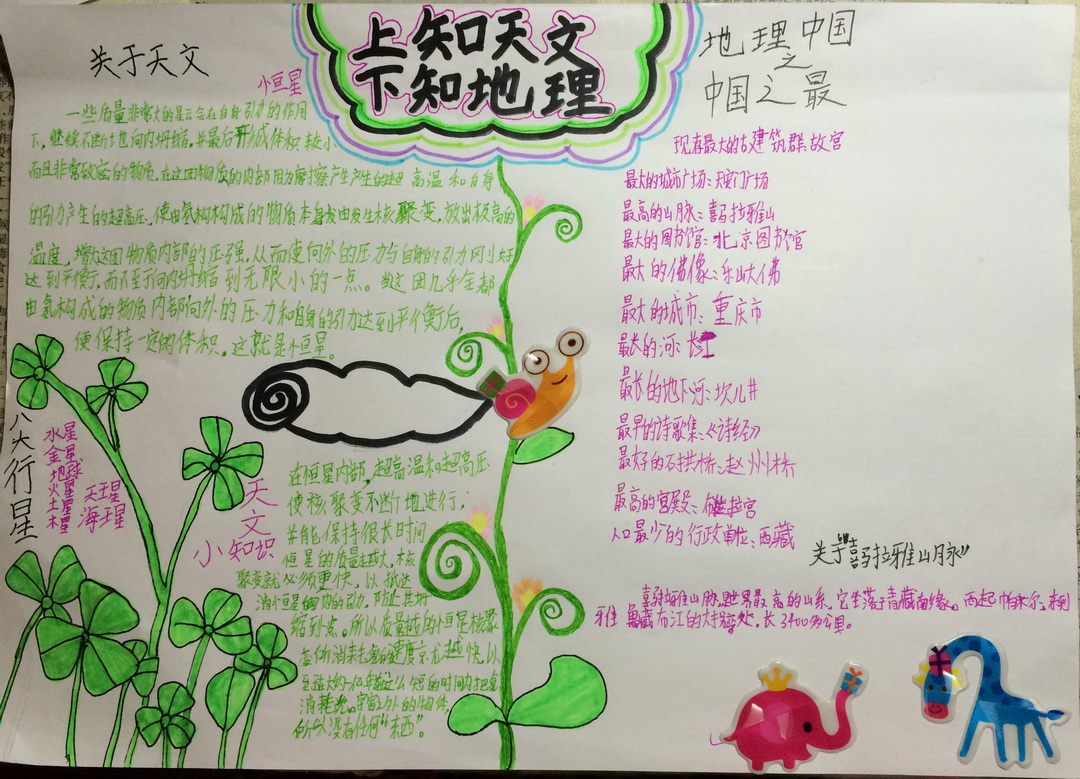 上知天文
下知地理
关于天文
恒星
一些质量非常大的星云会在自身引力的作用
下，继续不断地向内坍缩，并最后形成体积较小
而且非常致密的物质，在这团物质的内部因为摩擦产生产生的超高温和自身
的引力产生的超高压，使由氢构构成的物质本身发由发生核聚变，放出极高的
温度，增大这团物质内部的压强，从而使向外的压力与自身的引力刚刚好
达到平衡，而不至于向内坍缩到无限小的一点。当这团几乎全都
由氢构成的物质内部向外的压力和自身的引力达到平衡后，
便保持一定的体积。这就是恒星。
八大行星
水星
金星
地球
火星
土星
木星
天王星
海王星
天文
小知识
在恒星内部，超高温和超高压
使核聚变不断地进行，
并能保持很长时间
恒星的质量越大，核
聚变就必须更快，以抵达
消恒星的内的引力，防止其坍
缩到点。所以质量越的恒星核聚
变所消耗氢的速度京尤越快，以
至这大的一亿年这么短的时间内把氢
消耗完。宇宙之外的物体，
所以没有任何“东西”。
地理中国
之
中国之最
现存最大的古建筑群：故宫
最大的城市广场：天安门广场
最高的山脉：喜马拉雅山
最大的图书馆：北京图书馆
最大的佛像：乐山大佛
最大的城市：重庆市
最长的河：长江
最长的地下河：坎儿井
最早的诗歌集：《诗经》
最好的石拱桥：赵州桥
最高的宫殿：布达拉宫
人口最少的行政单位：西藏
关于“喜马拉雅山脉”
喜马拉雅山脉是世界最高的山系，它坐落于青藏南缘。西起帕米尔，东到
雅鲁藏布江的大拐弯处，长2400多公里。